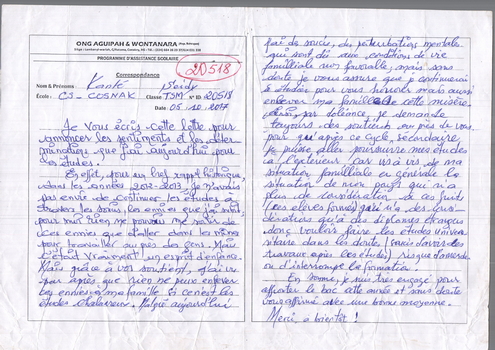 ONG AGUIPAH & WONTANARA
PROGRAMME D'ASSISTANCE SCOLAIRE
Correspondance
20518
Nom & Prénoms : Kanté Seidy
École : CS-COSNAK Classe : TSM N° ID : 20518
Date : 05.10.2017
Je vous écris cette lettre pour
annoncer les sentiments et les déter-
minations que j'ai aujourd'hui pour
les études.
En effet, pour un bref rappel historique,
dans les années 2012-2013 je n'avais
pas envie de continuer les études à
les envies que j'ai
pour moi rien ne pouvait me
ces envies que d'aller dans les mines
pour travailler au pas des gens. Mais
c'était vraiment un esprit d'enfance.
Mais grâce à vos soutient, j'ai su
par après que rien ne peux enlever
les envies à ma famille si ce n'est les
études chaleureux. Malgré aujourd'hui
j'ai de soucis, de perturbations mentales
qui sont dû aux conditions de vie
familliale non favorable, mais sans
doute je vous assure que je continuerai
les études pour vous honorer mais aussi
enlever ma famille de cette misère.
je demande
toujours des soutients auprès de vous
pour qu'après ce cycle secondaire
je puisse aller poursuivre mes études
à l'extérieur car vis à vis de ma
situation familliale en générale la
situation de mon pays qui n'a
plus de considération à ces fruits
(ses élèves formés)
qu'à des diplômes étrangers
donc vouloir faire les études univer-
sitaire dans les doute (
travaux après ces études) risque
ou d'interrompre la formation.
En somme, je suis très engagé pour
affronter le bac cette année et sans doute
vous affirmé avec une bonne moyenne.
Merci, à bientôt !